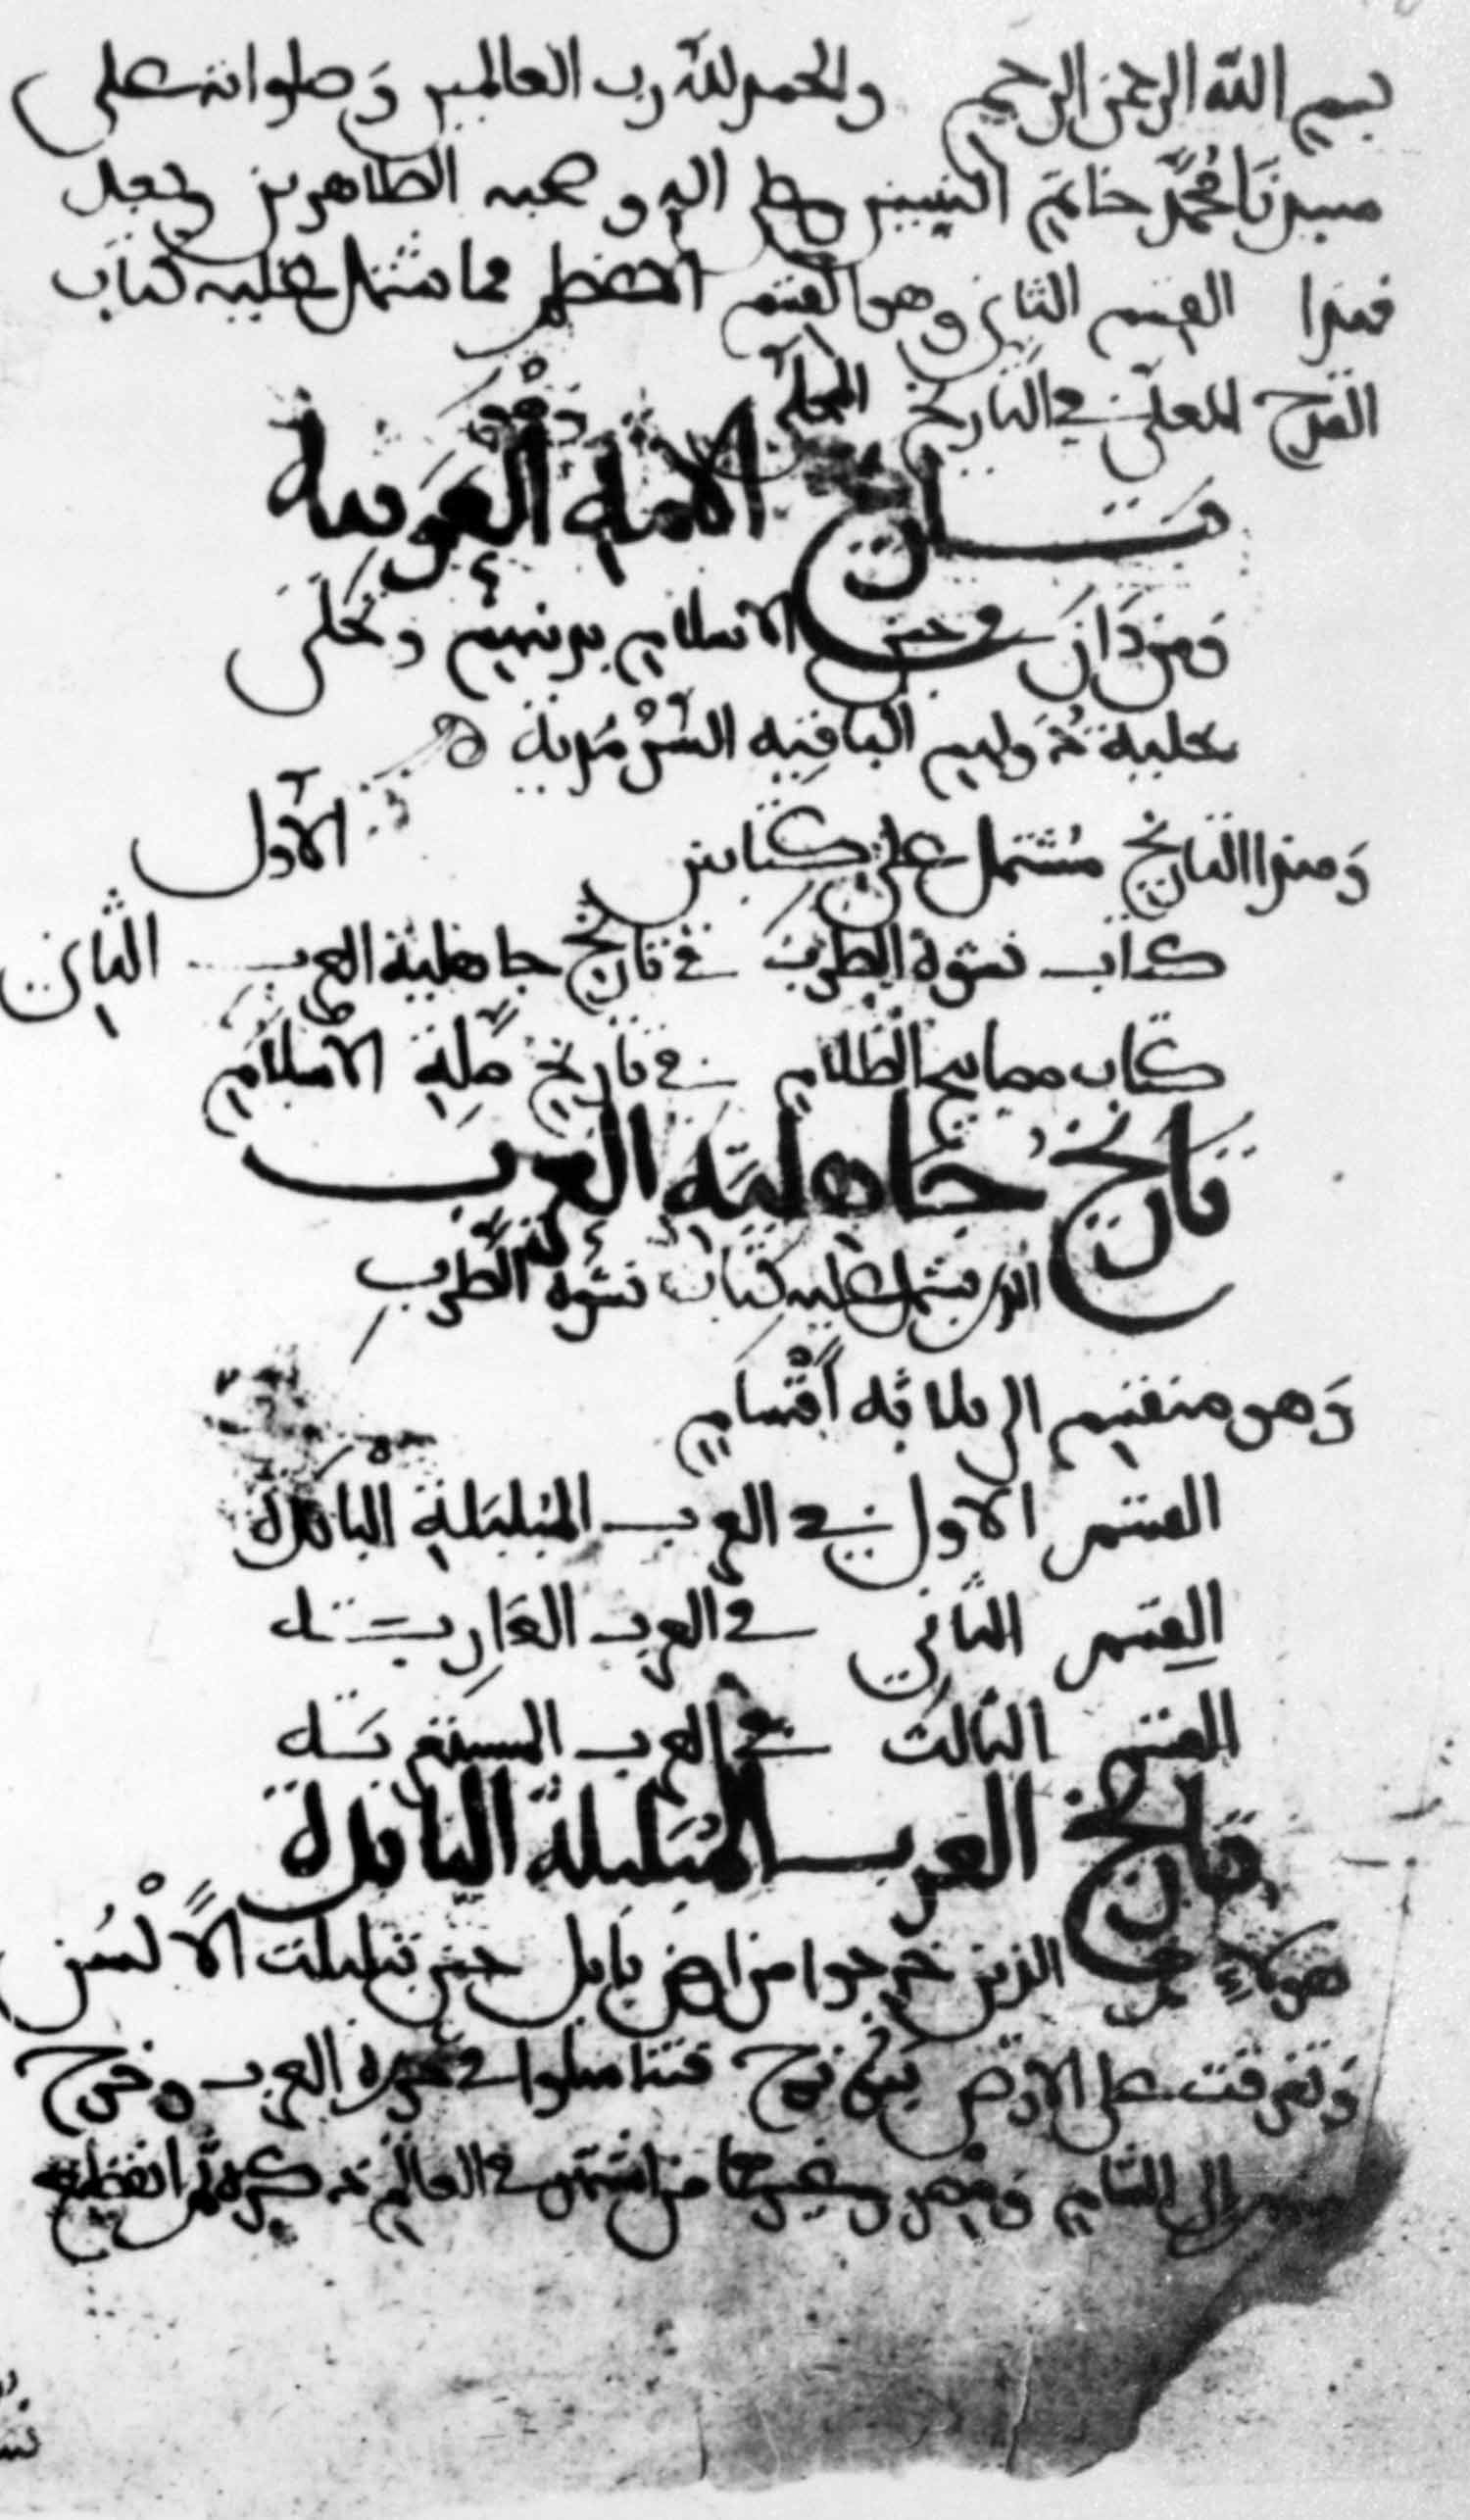 بسم الله الرحمن الرحيم والحمد لله رب العالمين وَصلواته على
سيدنَا مُحمَّد خاتم النبيين وعلى اله وصحبه الطاهرين وبعد
فهذا القسم الثاني وهو القسم الاعظم مما يشتمل عليه كتاب
القدح المعلّى في التاريخ المحلّى
تَاريخ الامة العَرَبية
وَمن دَانَ في حين الاسلام بدينهم وتحَلّى
بحلية دَولتهم الباقية السَّرْمَدية
وَهذا التاريخ مُشتمل على كتابين الأول
كتاب نشوة الطَّرَب في تاريخ جاهلية العرب الثاني
كتاب مصابيح الظَّلام في تاريخ مِلَّة الاسلام
تاريخ جَاهليَة العَرَب
الذي يشتمل عليه كتاب نشوة الطَّرب
وَهو منقسم الى ثلاثة أقْسام
القسم الاول في العرب المُتبلبَلة البائدة
القِسم الثاني في العرب العَارِبَة
القسم الثالث في العرب المستعربَة
تاريخ العرب المُتَبلبلة البائدة
هؤلاء هم الذين خرجوا من ارض بَابل حين تبلبلت الألْسُن
وَتفرقت على الارض بَنُو نوح فتناسلوا في جزيرة العرب وخرج
منهم الى الشام وَمصر وغيرهما من اشتهر في العالم ذكره ثم انقطع